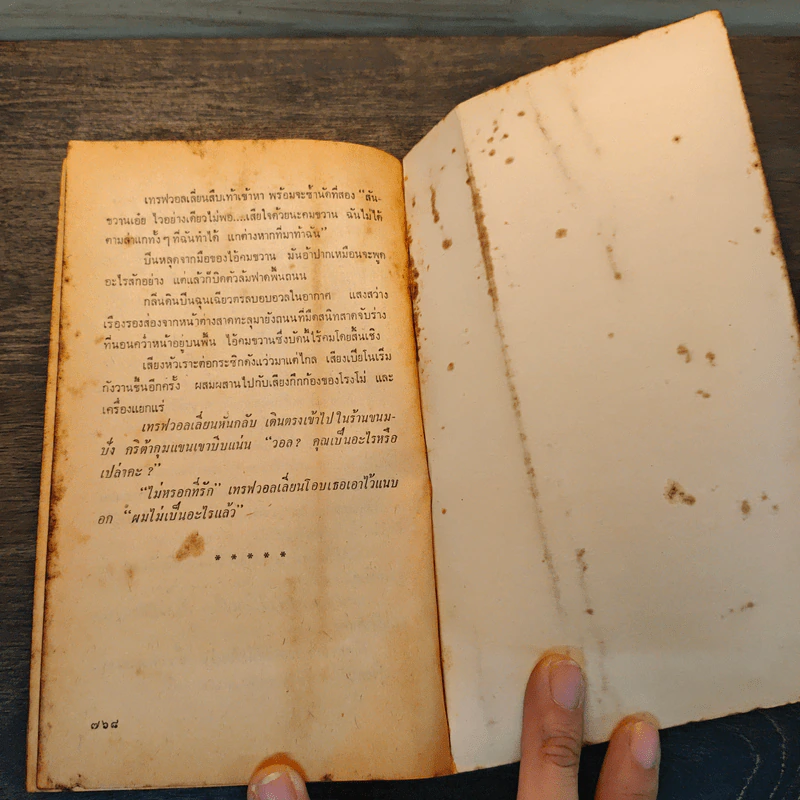 เทรฟวอลเลี่ยนสืบเท้าเข้าหา พร้อมจะซ้ำนัดที่สอง “สัน-
ขวานเอ๋ย ไวอย่างเดียวไม่พอ....เสียใจด้วยนะคมขวาน ฉันไม่ได้
ตามล่าแกทั้ง ๆ ที่ฉันทำได้ แกต่างหากที่มาท้าฉัน”
ปืนหลุดจากมือของไอ้คมขวาน มันอ้าปากเหมือนจะพูด
อะไรสักอย่าง แต่แล้วก็บิดตัวล้มฟาดพื้นถนน
กลิ่นดินปืนฉุนเฉียวตรลบอบอวลในอากาศ แสงสว่าง
เรืองรองส่องจากหน้าต่างสาดทะลุมายังถนนที่มืดสนิทสาดจับร่าง
ที่นอนคว่ำหน้าอยู่บนพื้น ไอ้คมขวานซึ่งบัดนี้ไร้คมโดยสิ้นเชิง
เสียงหัวเราะต่อกระซิกดังแว่วมาแต่ไกล เสียงเปียโนเริ่ม
กังวานขึ้นอีกครั้ง ผสมผสานไปกับเสียงกึกก้องของโรงโม่ และ
เครื่องแยกแร่
เทรฟวอลเลี่ยนหันกลับ เดินตรงเข้าไปในร้านขนม-
ปัง กริต้ากุมแขนเขาบีบแน่น “วอล? คุณเป็นอะไรหรือ
เปล่าคะ?”
“ไม่หรอกที่รัก” เทรฟวอลเลี่ยนโอบเธอเอาไว้แนบ
อก “ผมไม่เป็นอะไรแล้ว”
* * * * *
๗๖๘